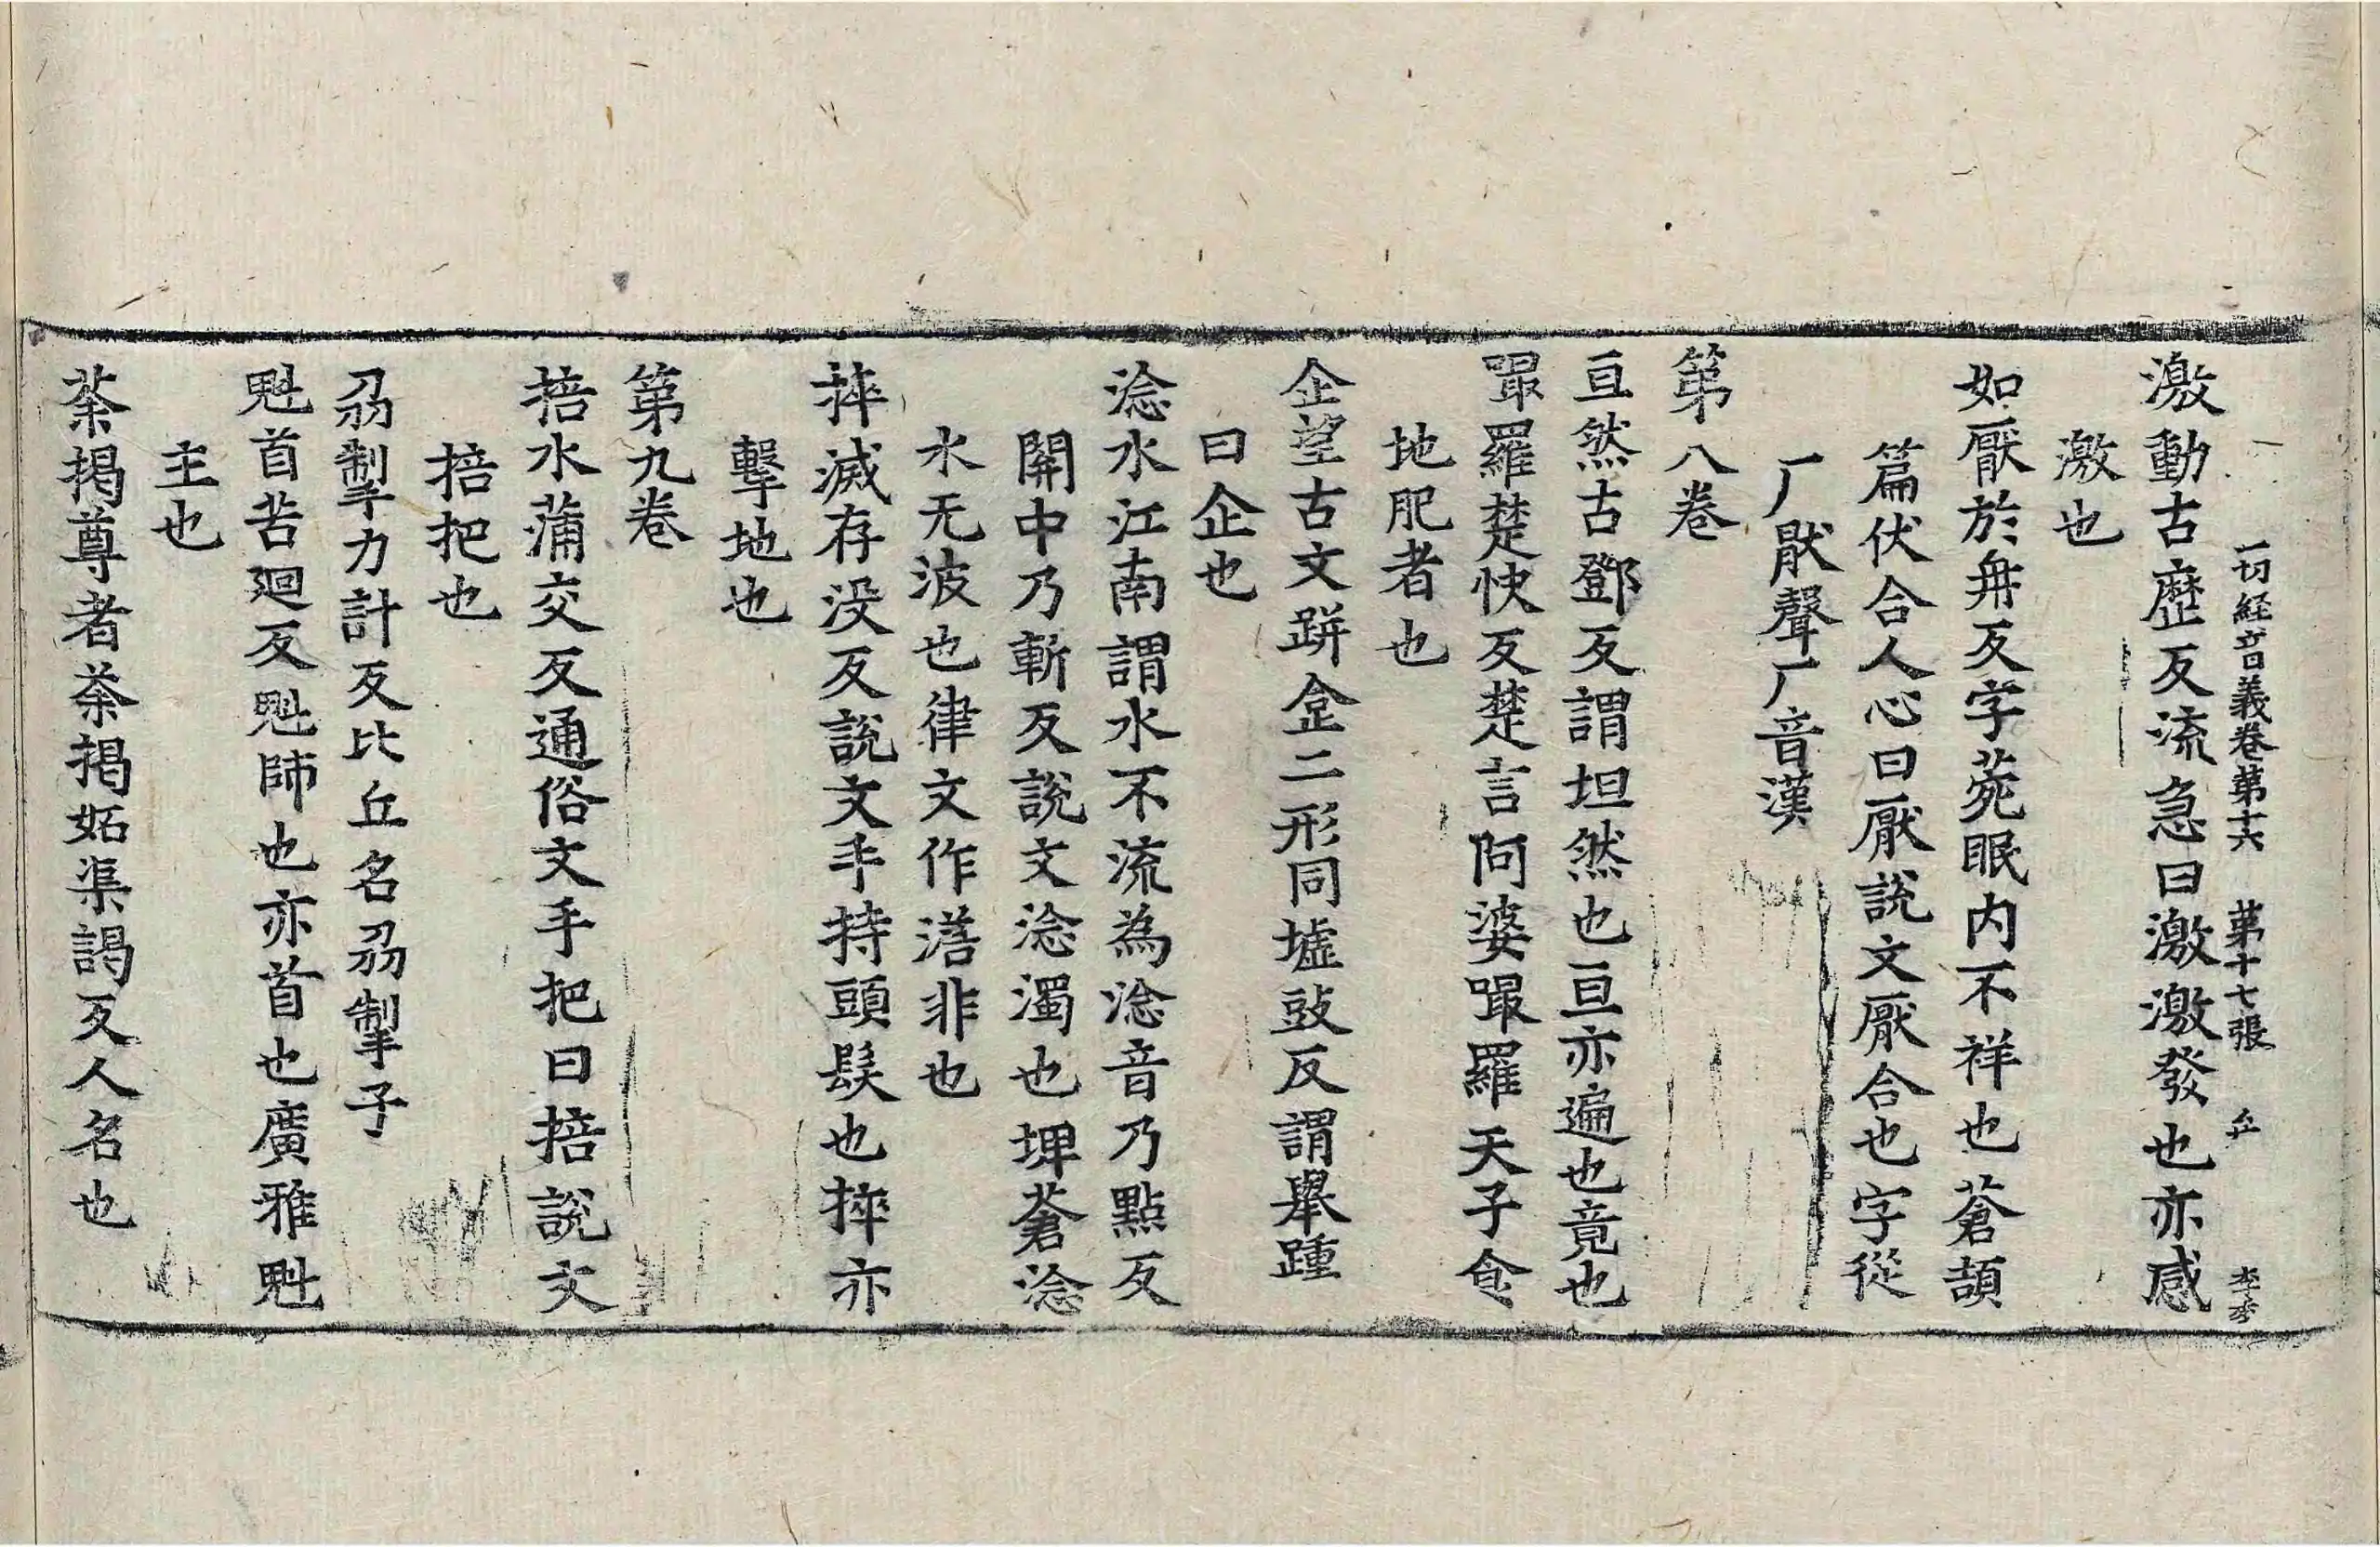 一切経音義卷第十六 第十七張
激動古歴反流急曰激激發也亦感
激也
如厭於冉反字苑眠内不祥也蒼頡
篇伏合人心曰厭說文厭合也字從
厂猒聲厂音漢
第八卷
亘然古鄧反謂坦然也亘亦遍也竟也
㗔羅楚快反楚言阿婆㗔羅天子食
地肥者也
企望古文跰㒱二形同墟豉反謂舉踵
曰企也
淰水江南謂水不流為淰音乃點反
開中乃斬反說文淰濁也埤蒼淰
水无波也律文作澘非也
捽滅存没反說文手持頭髮也捽亦
擊地也
第九卷
掊水蒲交反通俗文手把曰掊說文
掊把也
刕掣力計反比丘名刕掣子
魁首苦迴反魁師也亦首也廣雅魁
主也
荼揭尊者荼揭妬渠謁反人名也